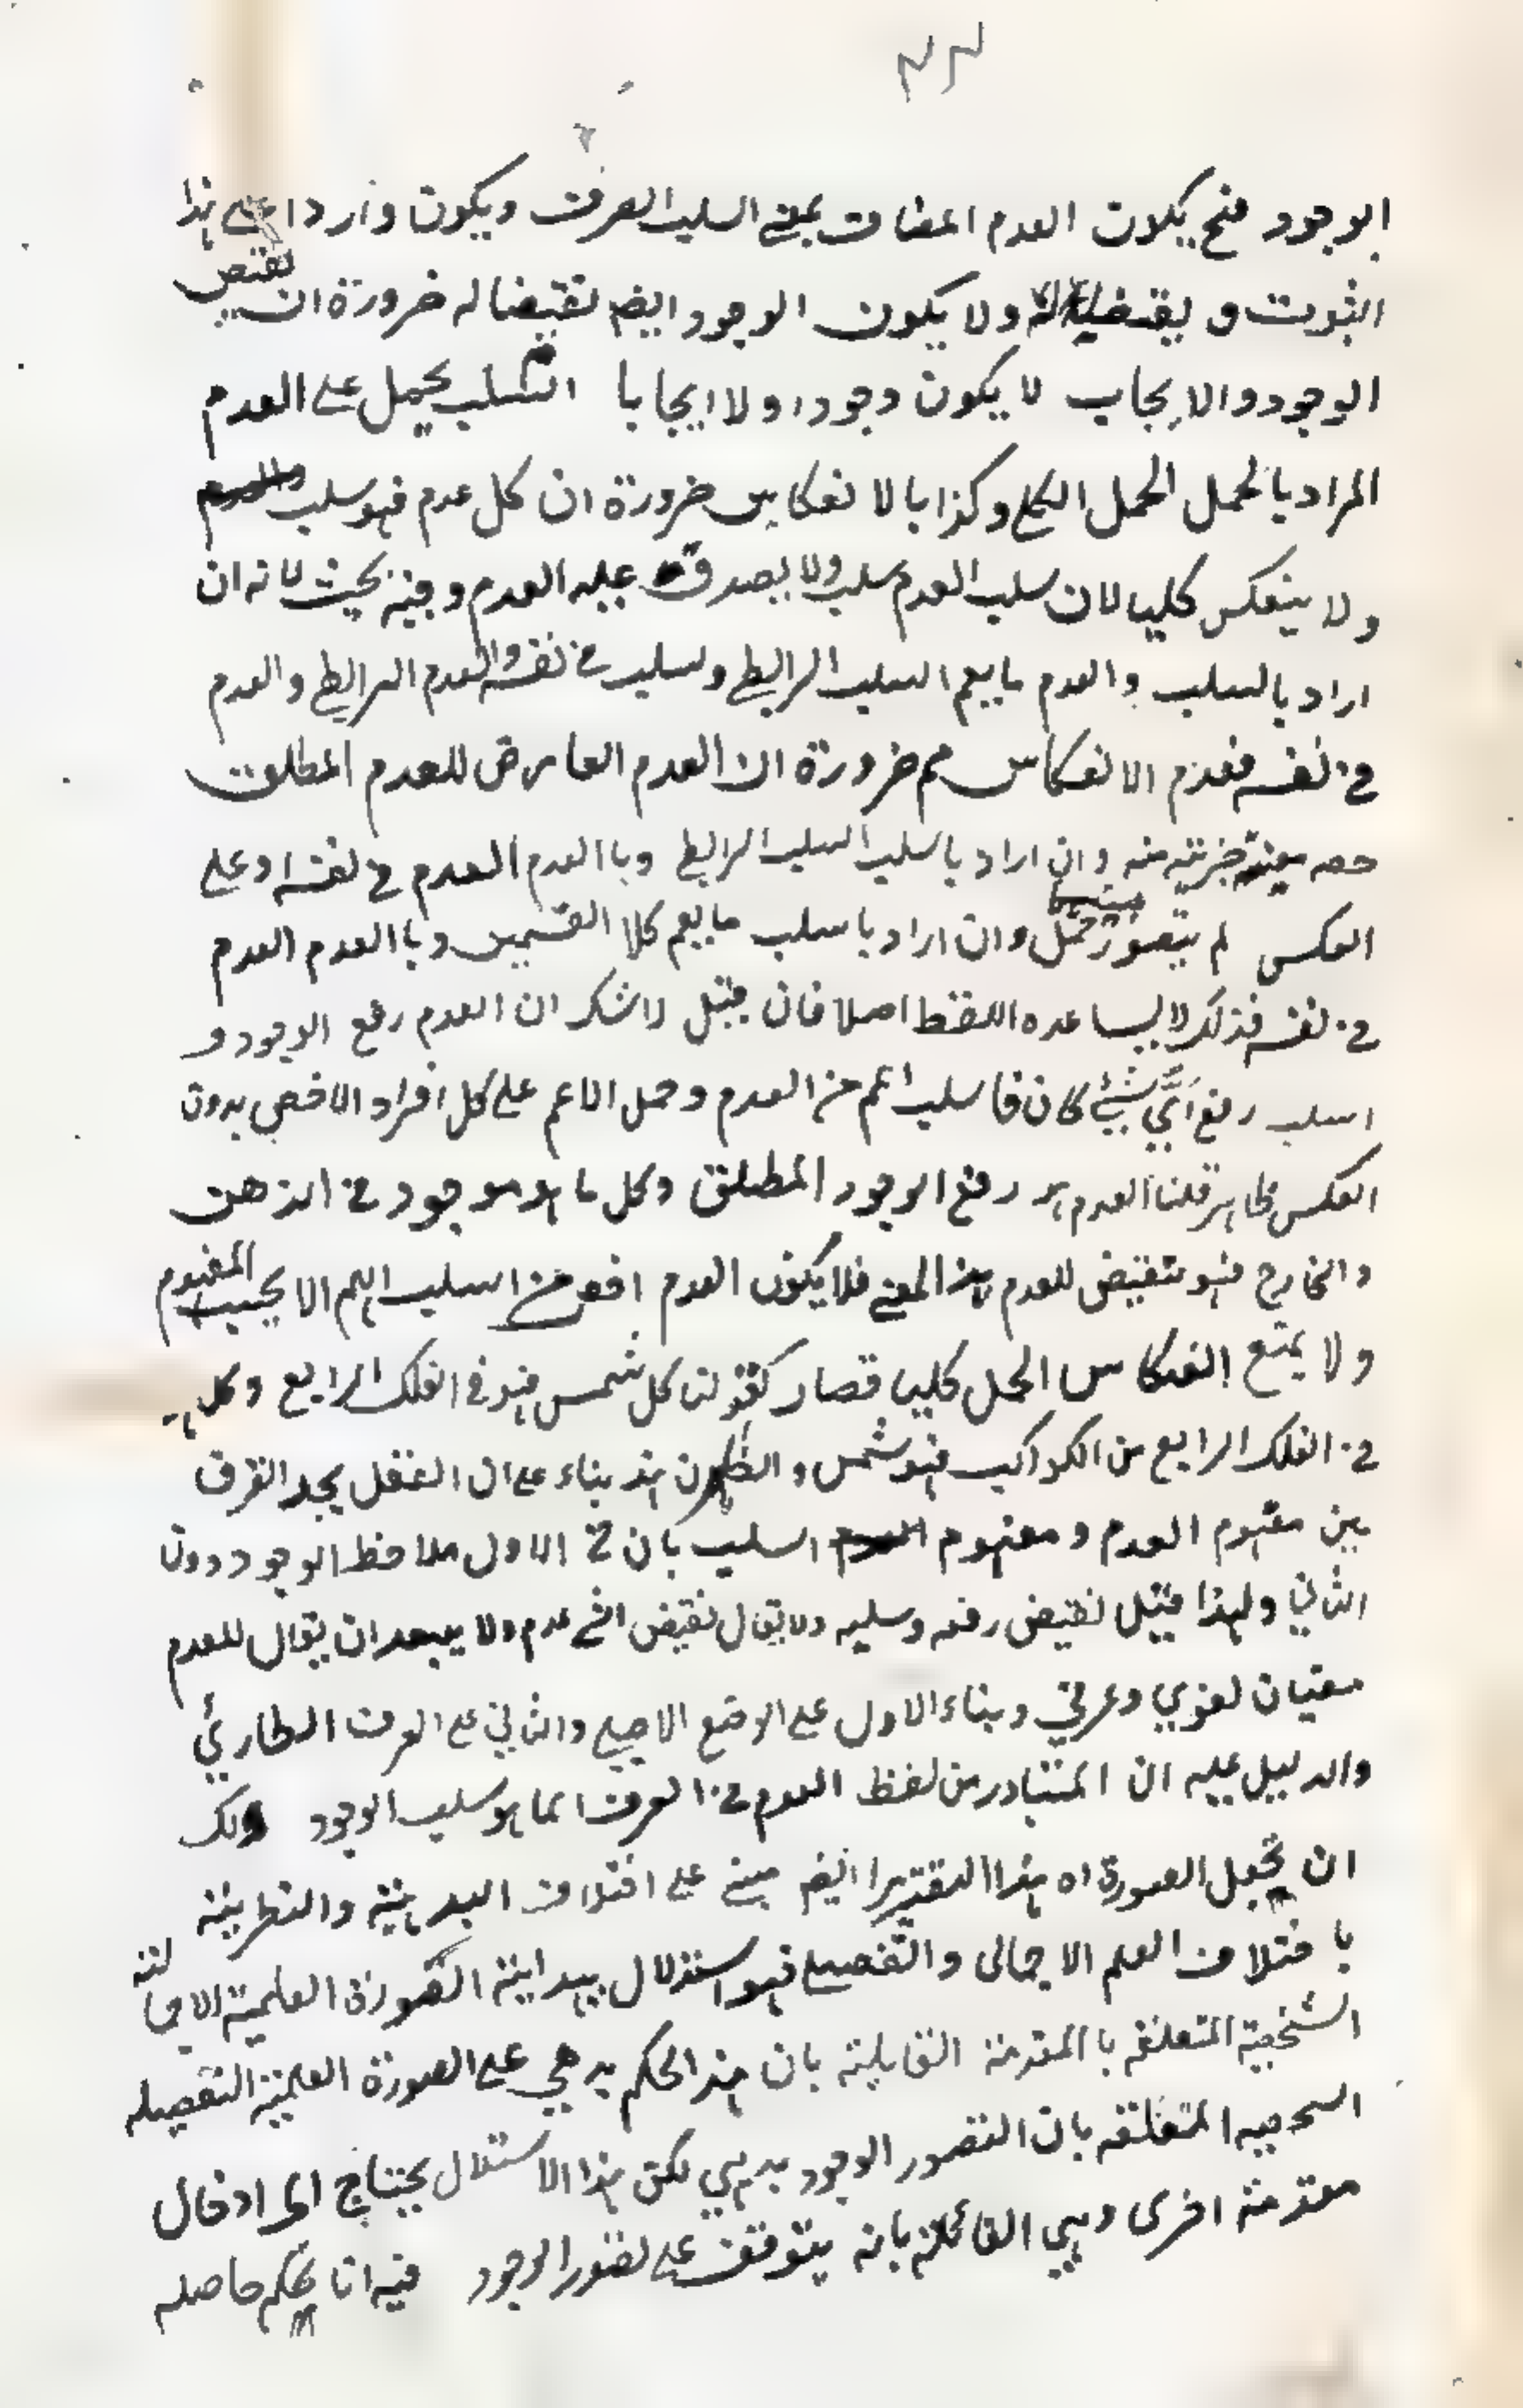 الوجود فح يكون العدم المضاف بمعنى السلب الصرف ويكون واردا على هذا
الثبوت و ولا يكون الوجود ايضم نقيضا له ضرورة ان نقيض
الوجود والايجاب لا يكون وجودا ولا ايجابا السلب يحمل على العدم
المراد بالحمل الحمل الكلي وكذا بالانعكاس ضرورة ان كل عدم فهو سلب
ولا ينعكس كليا لان سلب العدم سلب ولا يصدق عليه العدم وفيه بحيث لانه ان
اراد بالسلب والعدم ما يعم السلب الرابطي والسلب في نفسه والعدم الرابطي والعدم
في نفسه فعدم الانعكاس مم ضرورة ان العدم العارض للعدم المطلق
حصه معينة جزئية منه وان اراد باسلب السلب الرابطي وبا العدم العدم في نفسه او على
العكس لم يتصور حمل وان اراد باسلب ما يعم كلا القسمين وبا العدم العدم
في نفسه فذلك لا يساعده اللفظ اصلا فان قيل لاشك ان العدم رفع الوجود و
اسلب رفع اَيِّ شيئ كان فا سلب اعم من العدم وحمل الاعم على كل افراد الاخص بدون
العكس ظاهر قلنا العدم هو رفع الوجود المطلق وكل ما هو موجود في الذهن
والخارج فهو نقيض للعدم بهذا المعنى فلا يكون العدم اخص من اسلب اللهم الا بحسب المفهوم
ولا يمنع انعكاس الحمل كليا فصار كقولنا كل شمس فهو في الفلك الرابع وكل ما هو
في الفلك الرابع من الكواكب فهو شمس و هذا بناء على ان العقل يجد الفرق
بين مفهوم العدم ومفهوم السلب بان في الاول ملاحظ الوجود دون
الثاني ولهذا قيل نقيض رفعه وسلبه ولا يقال نقيض الشئ عدم ولا يبعد ان يقال للعدم
معنيان لغوي وعرفي وبناء الاول على الوضع الاصلي والثاني على العرف الطارئ
والدليل عليه ان المتبادر من لفظ العدم في العرف انما هو سلب الوجود ولك
ان تجعل الصورة اه هذا التقرير ايضم مبني على اختلاف البديهية والنظرية
باختلاف العلم الاجمالى والتفصيلى فهو استدلال ببداهة الصورة العلمية الاجمالية
الشخصية المتعلقه با المقدمة القايلة بان هذا الحكم بدهي على الصورة العلمية التفصيله
المتعلقه بان التصور الوجود بديهي لكن هذا الاستدلال يحتاج الى ادخال
مقدمة اخرى وهي القائلة بانه يتوقف على تصور الوجود فيه انا نحكم حاصله